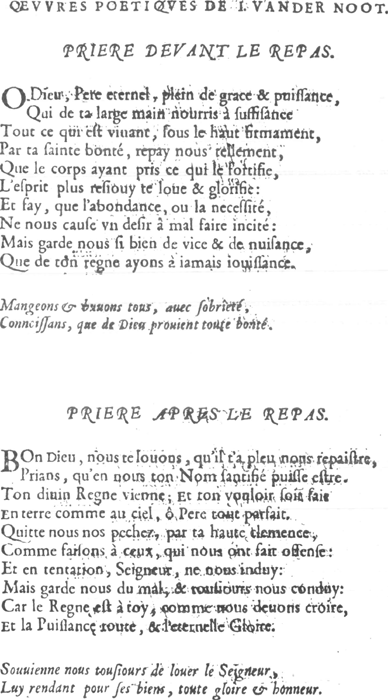 OEVVRES POETIQVES DE I. VANDER NOOT.
PRIERE DEVANT LE REPAS.
O Dieu, Pere eternel, plein de grace & puissance,
Qui de ta large main nourris à suffisance
Tout ce qui est viuant, sous le haut firmament,
Par ta sainte bonté, repay nous tellement,
Que le corps ayant pris ce qui le fortifie,
L'esprit plus resiouy te loue & glorifie:
Et fay, que l'abondance, ou la necessité,
Ne nous cause vn desir à mal faire incité:
Mais garde nous si bien de vice & de nuisance,
Que de ton regne ayons à iamais iouissance.
Mangeons & buuons tous, auec sobrieté,
Connoissans, que de Dieu prouient toute bonté.
PRIERE APRES LE REPAS.
BOn Dieu, nous te louons, qu'il t'a pleu nous repaistre,
Prians, qu'en nous ton Nom santifié puisse estre.
Ton diuin Regne vienne; Et ton vouloir soit fait
En terre comme au ciel, ô Pere tout parfait.
Quitte nous nos pechez, par ta haute clemence,
Comme faisons à ceux, qui nous ont fait offense:
Et en tentation, Seigneur, ne nous induy:
Mais garde nous du mal, & tousiours nous conduy:
Car le Regne est à toy, comme nous deuons croire,
Et la Puissance toute, & l'eternelle Gloire.
Souuienne nous tousiours de louer le Seigneur,
Luy rendant pour ses biens, toute gloire & honneur.